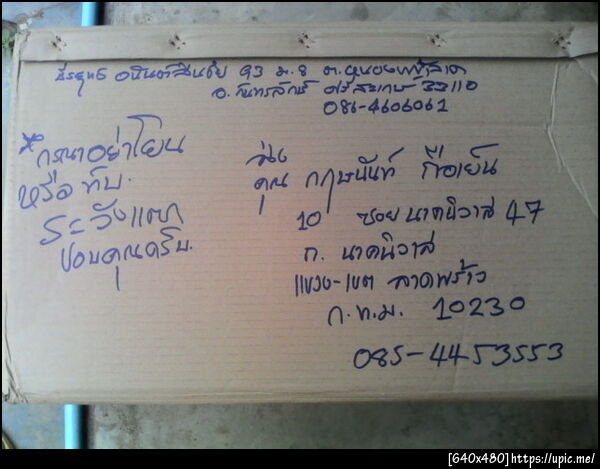 93 ม.8 ต.หนองหญ้าลาด
อ.กันทรลักษ์ ศรีสะเกษ 33110
086-4606061
*กรุณาอย่าโยน
หรือ ทับ.
ระวังแตก
ขอบคุณครับ.
ส่ง
คุณ กฤษนันท์ ถือเย็น
10 ซอย นาคนิวาส 47
ถ. นาคนิวาส
แขวง-เขต ลาดพร้าว
ก.ท.ม. 10230
085-4453553
[640x480]https://upic.me/